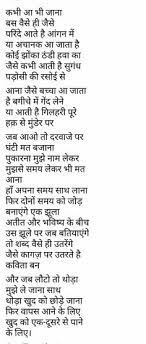 कभी आ भी जाना
बस वैसे ही जैसे
परिंदे आते हैं आंगन में
या अचानक आ जाता है
कोई झोंका ठंडी हवा का
जैसे कभी आती है सुगंध
पड़ोसी की रसोई से
आना जैसे बच्चा आ जाता
है बगीचे में गेंद लेने
या आती है गिलहरी पूरे
हक़ से मुंडेर पर
जब आओ तो दरवाजे पर
घंटी मत बजाना
पुकारना मुझे नाम लेकर
मुझसे समय लेकर भी मत
आना
हाँ अपना समय साथ लाना
फिर दोनों समय को जोड़
बनाएंगे एक झूला
अतीत और भविष्य के बीच
उस झूले पर जब बतियाएंगे
तो शब्द वैसे ही उतरेंगे
जैसे कागज़ पर उतरते है
कविता बन
और जब लौटो तो थोड़ा
मुझे ले जाना साथ
थोड़ा खुद को छोड़े जाना
फिर वापस आने के लिए
खुद को एक-दूसरे से पाने
के लिए।